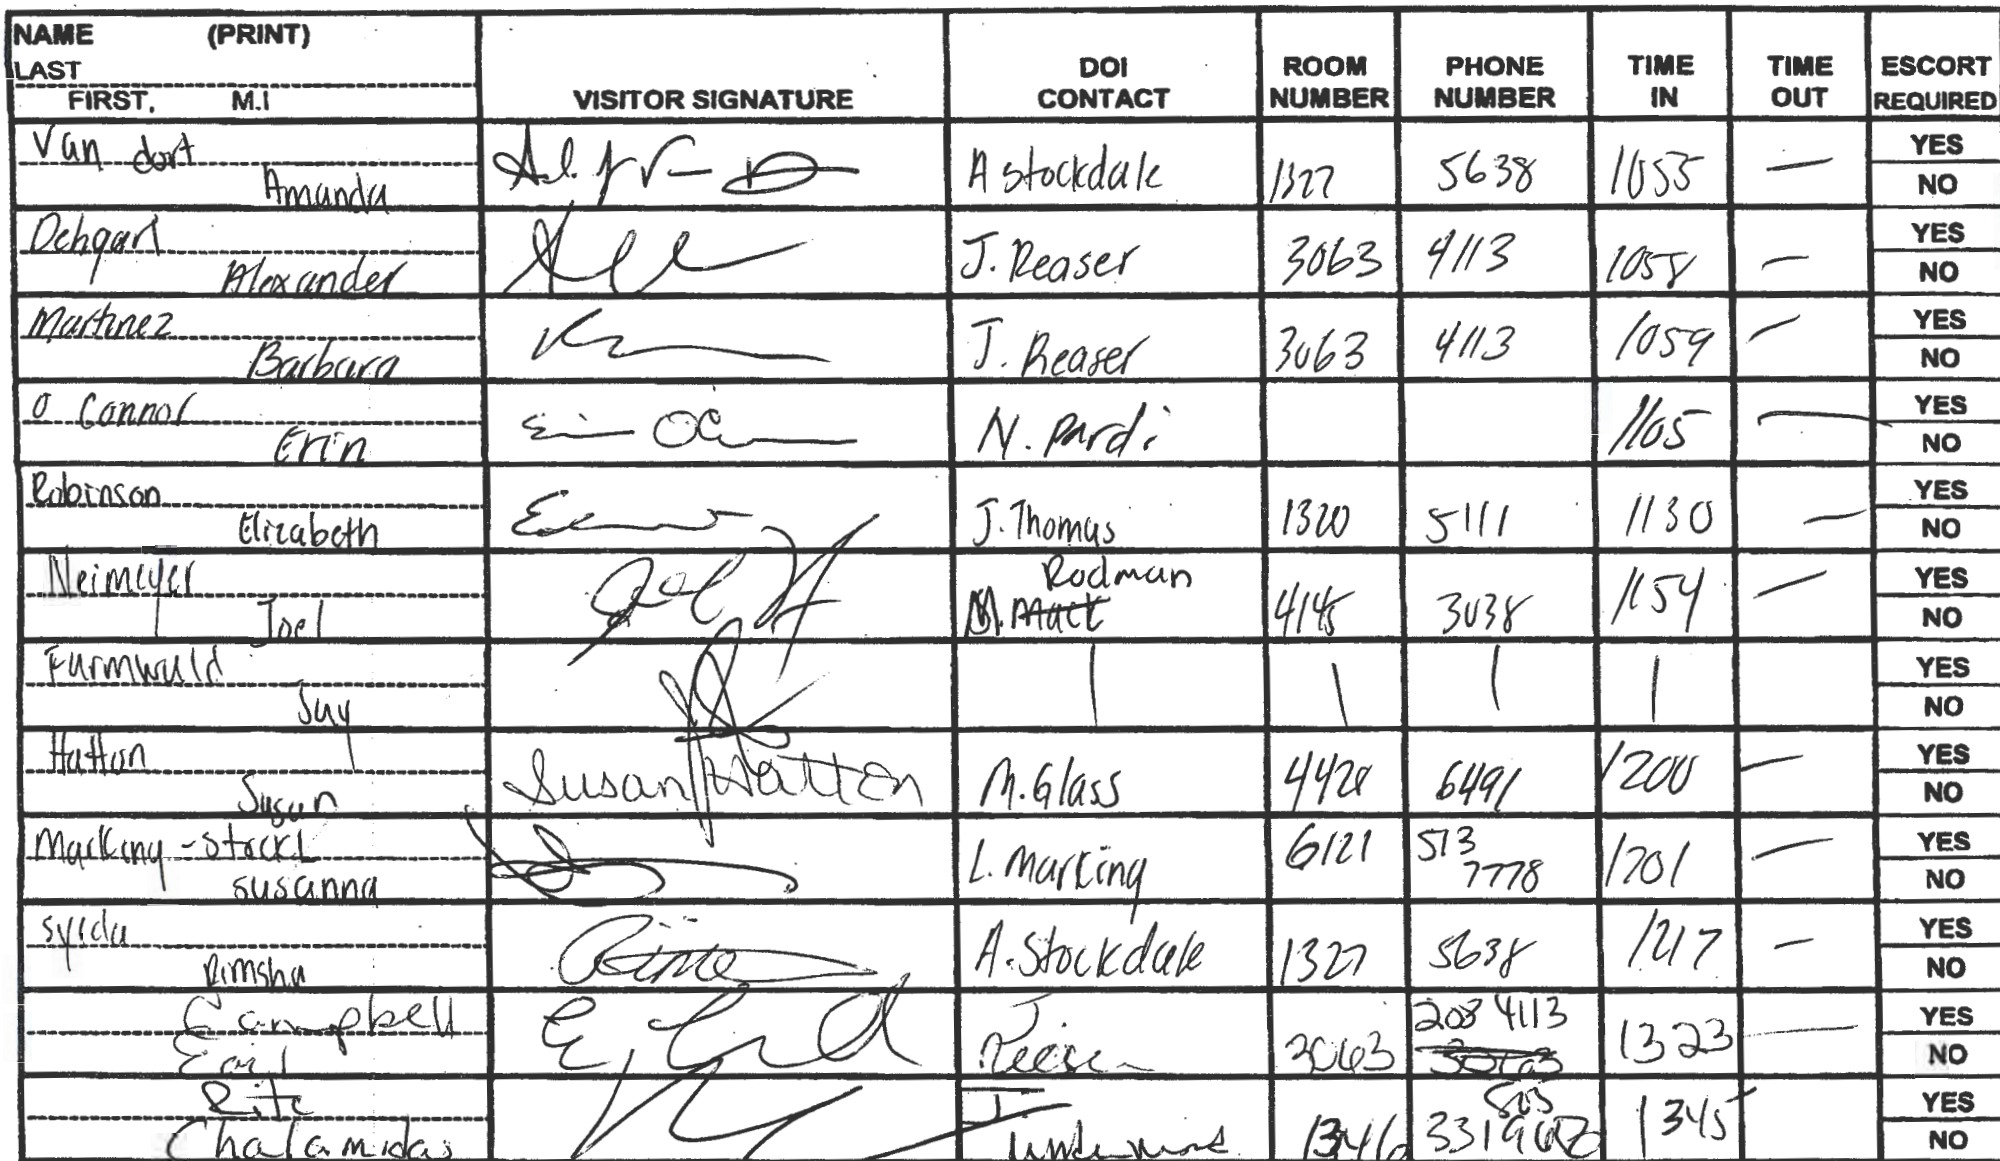 NAME (PRINT)
LAST
FIRST, M.I
VISITOR SIGNATURE
DOI CONTACT
ROOM NUMBER
PHONE NUMBER
TIME IN
TIME OUT
ESCORT REQUIRED
Van dort
Amanda
A Stockdale 1327 5638 1055 — YES NO
Alexander
J. Reaser 3063 4113 1058 — YES NO
Martinez
Barbara
J. Reaser 3063 4113 1059 — YES NO
O Connor
Erin
N. Pardi 1105 — YES NO
Robinson
Elizabeth
J. Thomas 1320 5111 1130 — YES NO
Neimeyer
Joel
Rodman
4145 3038 1154 — YES NO
Jay
YES NO
Hatton
Susan
Susan Hatton
M. Glass 6491 1200 — YES NO
Susanna
L. Marking 6121 513 7778 1201 — YES NO
Rimsha
A. Stockdale 1327 5638 1217 — YES NO
Campbell
J
3063 208 4113 1323 — YES NO
Chalamidas
J.
1346 1345 YES NO